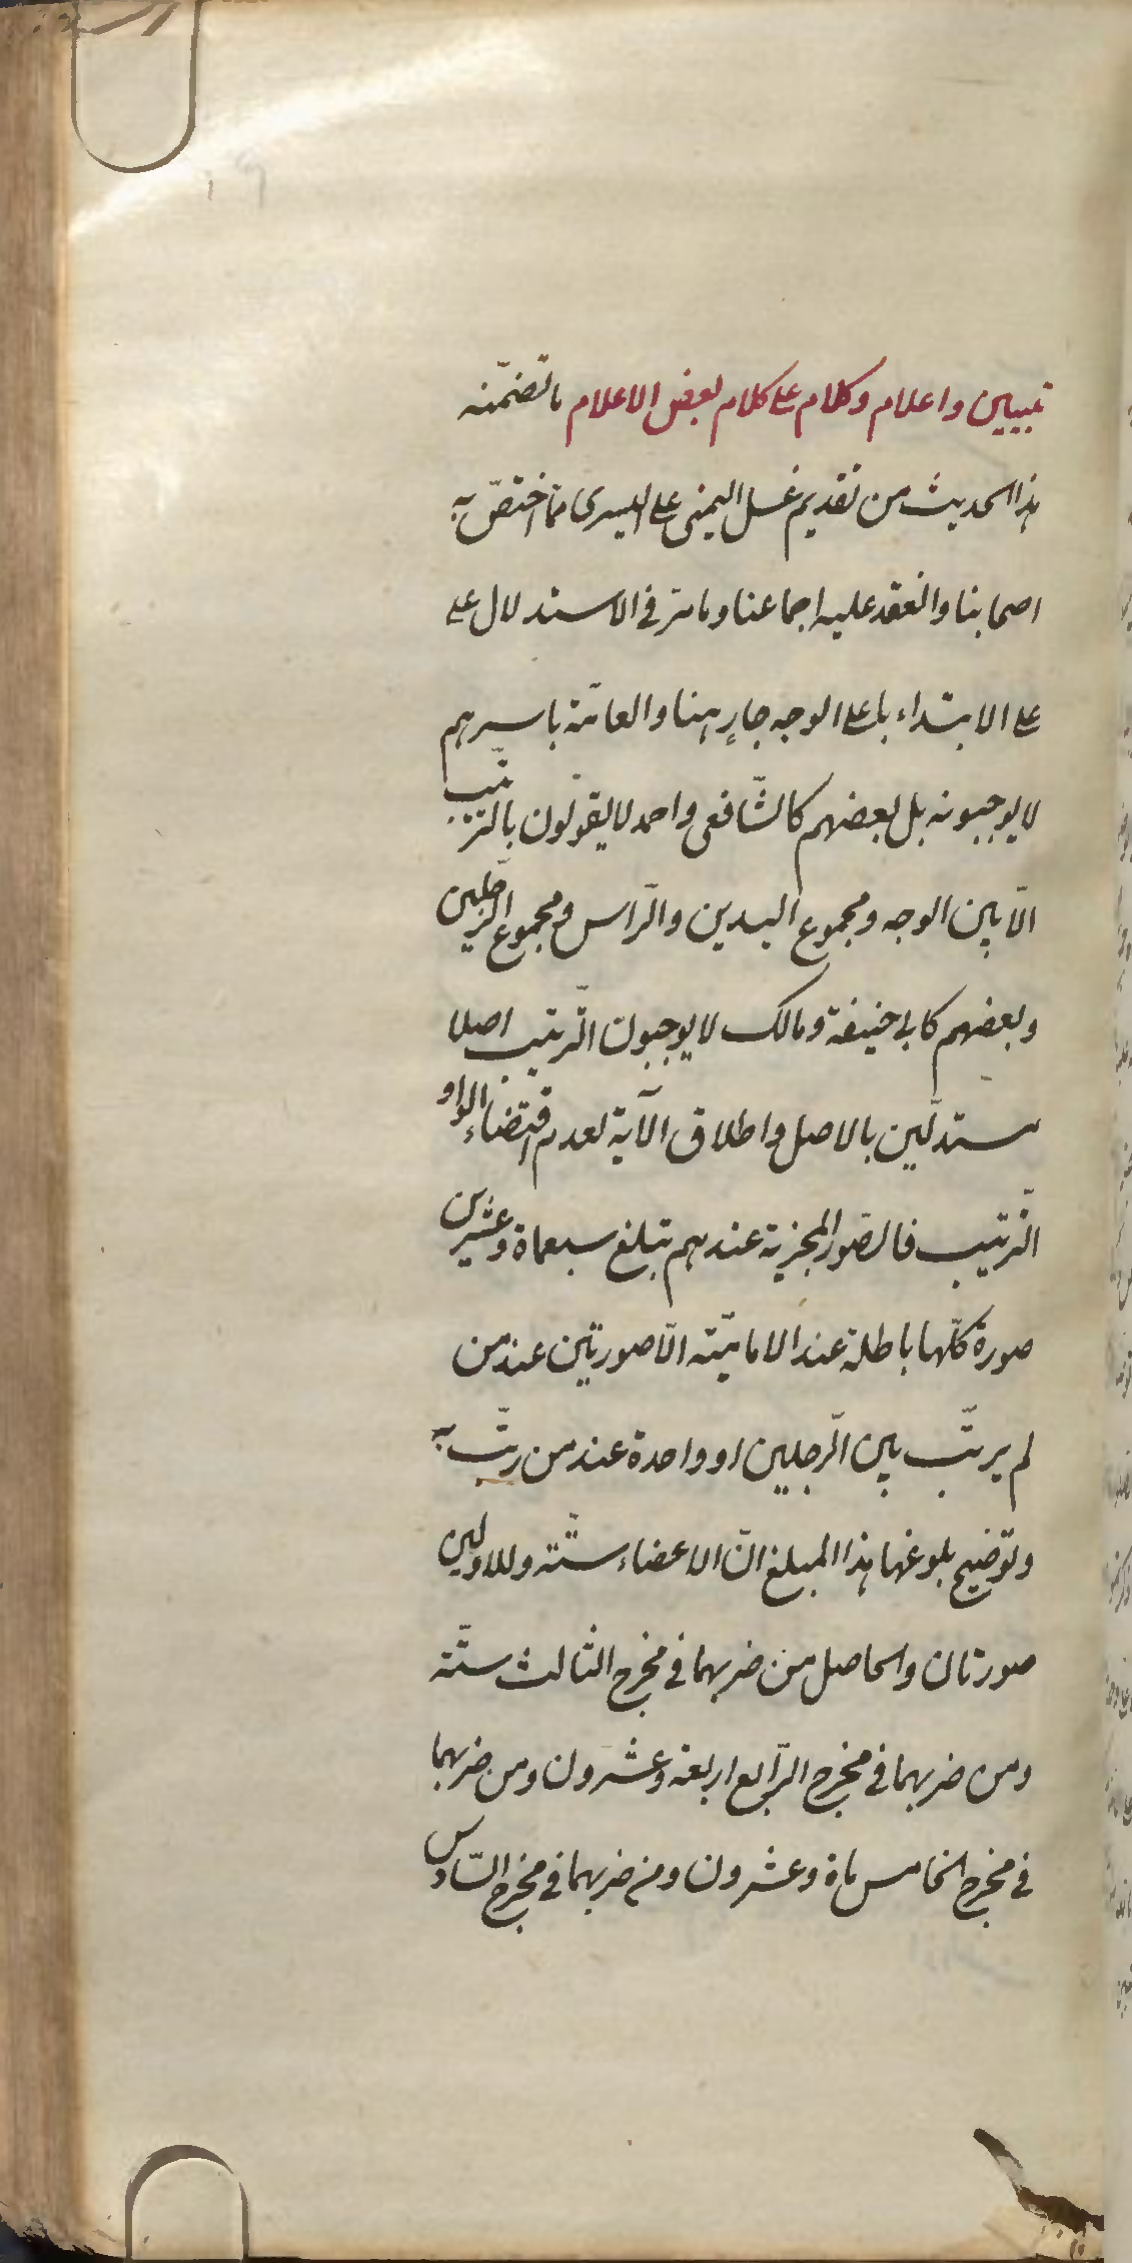 تبيين واعلام وكلام على كلام لبعض الاعلام ما تضمّنه
هذا الحديث من تقديم غسل اليمنى على اليسرى ممّا اختصّ به
اصحابنا وانعقد عليه اجماعنا وما مرّ في الاستدلال على
على الابتداء باعلى الوجه جارٍ هنا والعامّة باسرهم
لا يوجبونه بل بعضهم كالشّافعى واحمد لا يقولون بالترتيب
الّا بين الوجه ومجموع اليدين والرّاس ومجموع الرّجلين
وبعضهم كابى حنيفة ومالك لا يوجبون التّرتيب اصلا
مستدلّين بالاصل واطلاق الآية لعدم اقتضاء الواو
التّرتيب فالصّور المجزية عندهم تبلغ سبعماة وعشرين
صورة كلّها باطلة عند الاماميّة الّا صورتين عند من
لم يرتّب بين الرّجلين او واحدة عند من رتّب به
وتوضيح بلوغها هذا المبلغ انّ الاعضاء ستّة وللاولين
صورتان والحاصل من ضربهما في مخرج الثالث ستّة
ومن ضربهما في مخرج الرّابع اربعة وعشرون ومن ضربهما
في مخرج الخامس ماة وعشرون ومن ضربهما في مخرج السّادس